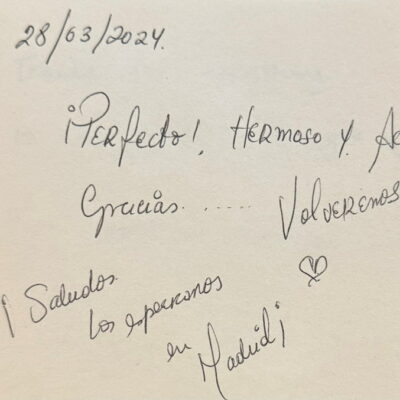 28/03/2024.
¡PERfecto!, HERMOSO Y Ac
Gracias...... VolVEREMOS
¡Saludos
Los esperamos
en
Madrid¡